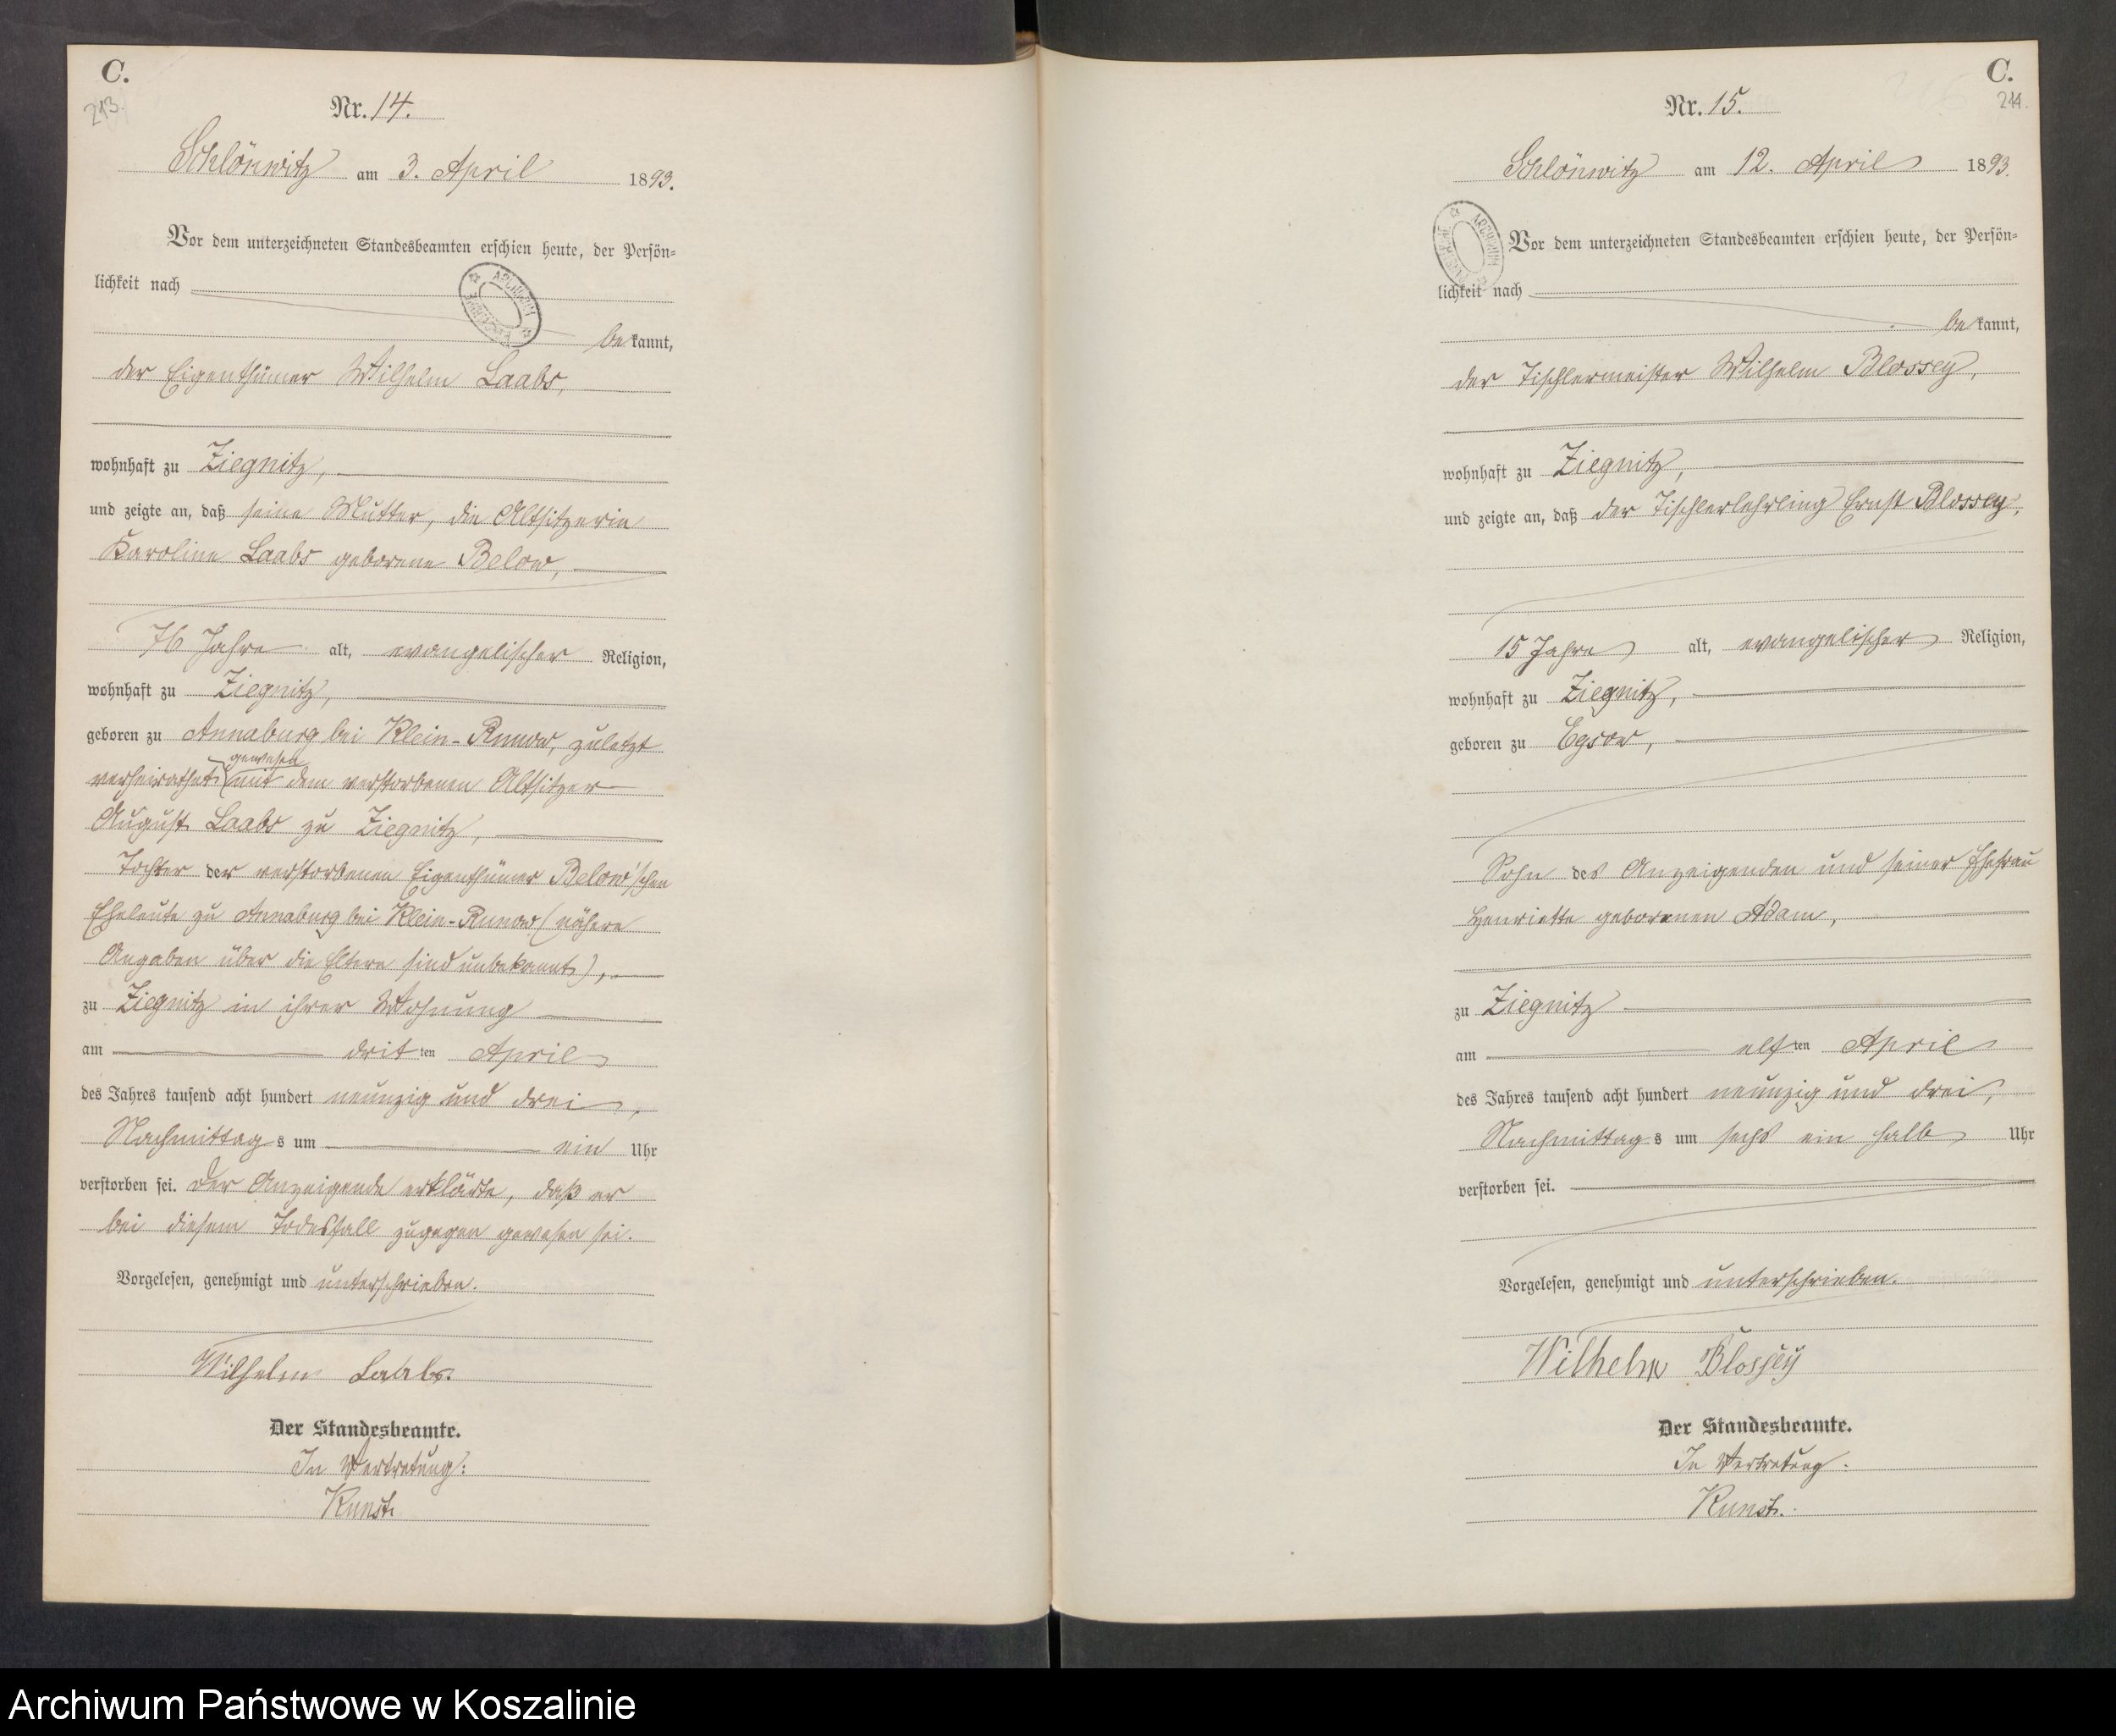 C.
213.
Nr. 14.
Schlönwitz am 3. April 1893.
Vor dem unterzeichneten Standesbeamten erschien heute, der Persön-
lichkeit nach
be kannt,
der Eigenthümer Wilhelm Laabs,
wohnhaft zu Ziegnitz,
und zeigte an, daß seine Mutter, die Altsitzerin
Karoline Laabs geborene Below,
76 Jahre alt, evangelischer Religion,
wohnhaft zu Ziegnitz,
geboren zu Annaburg bei Klein-Runow, zuletzt
gewesen
verheirathet mit dem verstorbenen Altsitzer
August Laabs zu Ziegnitz,
Tochter der verstorbenen Eigenthümer Below'schen
Eheleute zu Annaburg bei Klein-Runow (nähere
Angaben über die Eltern sind unbekannt),
zu Ziegnitz in ihrer Wohnung
am drit ten April
des Jahres tausend acht hundert neunzig und drei,
Nachmittag s um ein Uhr
verstorben sei. Der Anzeigende erklärte, daß er
bei diesem Todesfall zugegen gewesen sei.
Vorgelesen, genehmigt und unterschrieben.
Wilhelm Laabs.
Der Standesbeamte.
In Vertretung:
Kunst.
C.
214.
Nr. 15.
Schlönwitz am 12. April 1893.
ARCHIWUM
Vor dem unterzeichneten Standesbeamten erschien heute, der Persön-
lichkeit nach
be kannt,
der Tischlermeister Wilhelm Blossey,
wohnhaft zu Ziegnitz,
und zeigte an, daß der Tischlerlehrling Ernst Blossey,
15 Jahre alt, evangelischer Religion,
wohnhaft zu Ziegnitz,
geboren zu Egsow,
Sohn des Anzeigenden und seiner Ehefrau
Henriette geborenen Adam,
zu Ziegnitz
am elf ten April
des Jahres tausend acht hundert neunzig und drei,
Nachmittag s um sechs ein halb Uhr
verstorben sei.
Vorgelesen, genehmigt und unterschrieben.
Wilhelm Blossey
Der Standesbeamte.
In Vertretung:
Kunst.
Archiwum Państwowe w Koszalinie